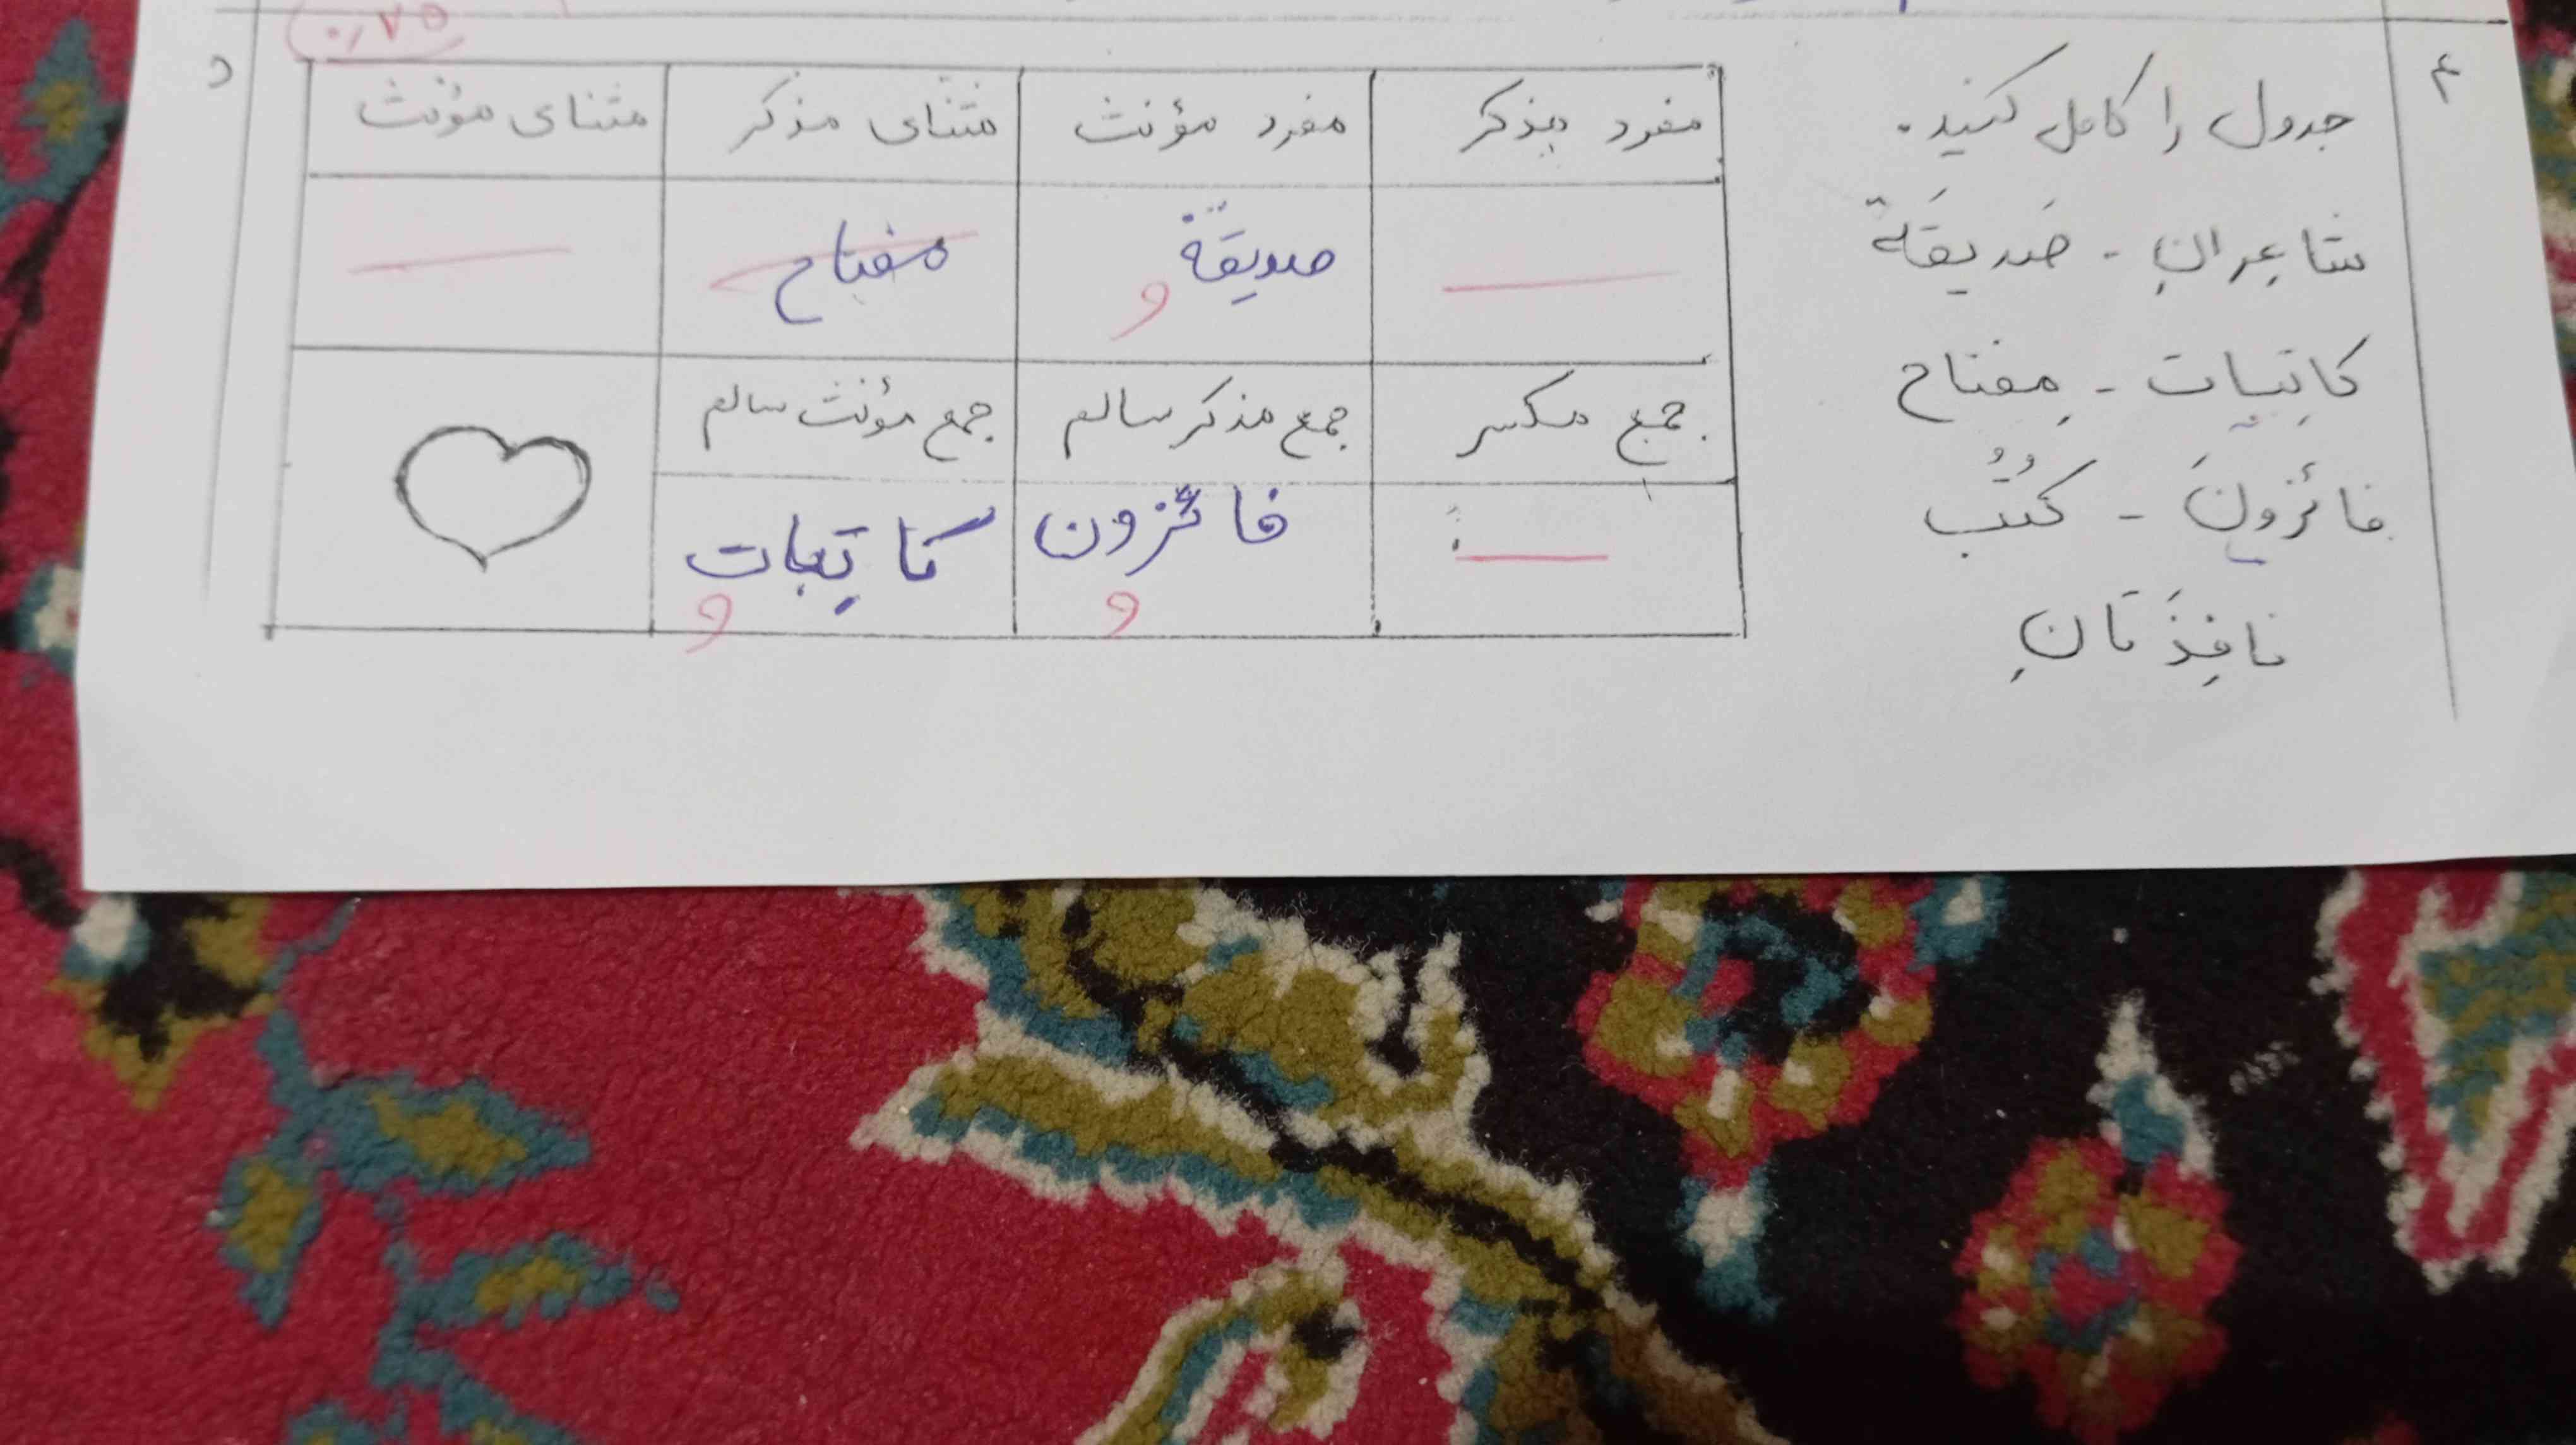 ۰/۷۵
۴
جدول را کامل کنید.
شاعِرانِ - صَدیقَة
کاتِبات - مِفتاح
فائزونَ - کُتُب
نافِذَتانِ
مفرد مذکر
مفرد مؤنث
مثنای مذکر
مثنای مؤنث
صدیقَة
مفتاح
جمع مکسر
جمع مذکر سالم
جمع مؤنث سالم
فائزون
کاتِبات